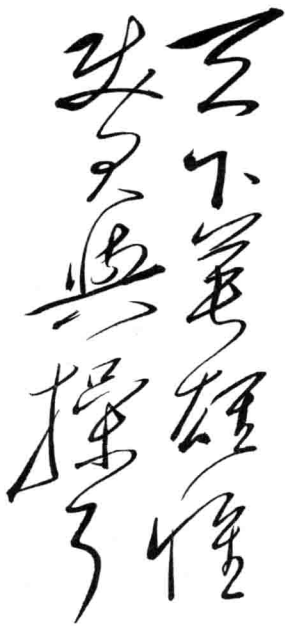 天下英雄惟
使君與操耳